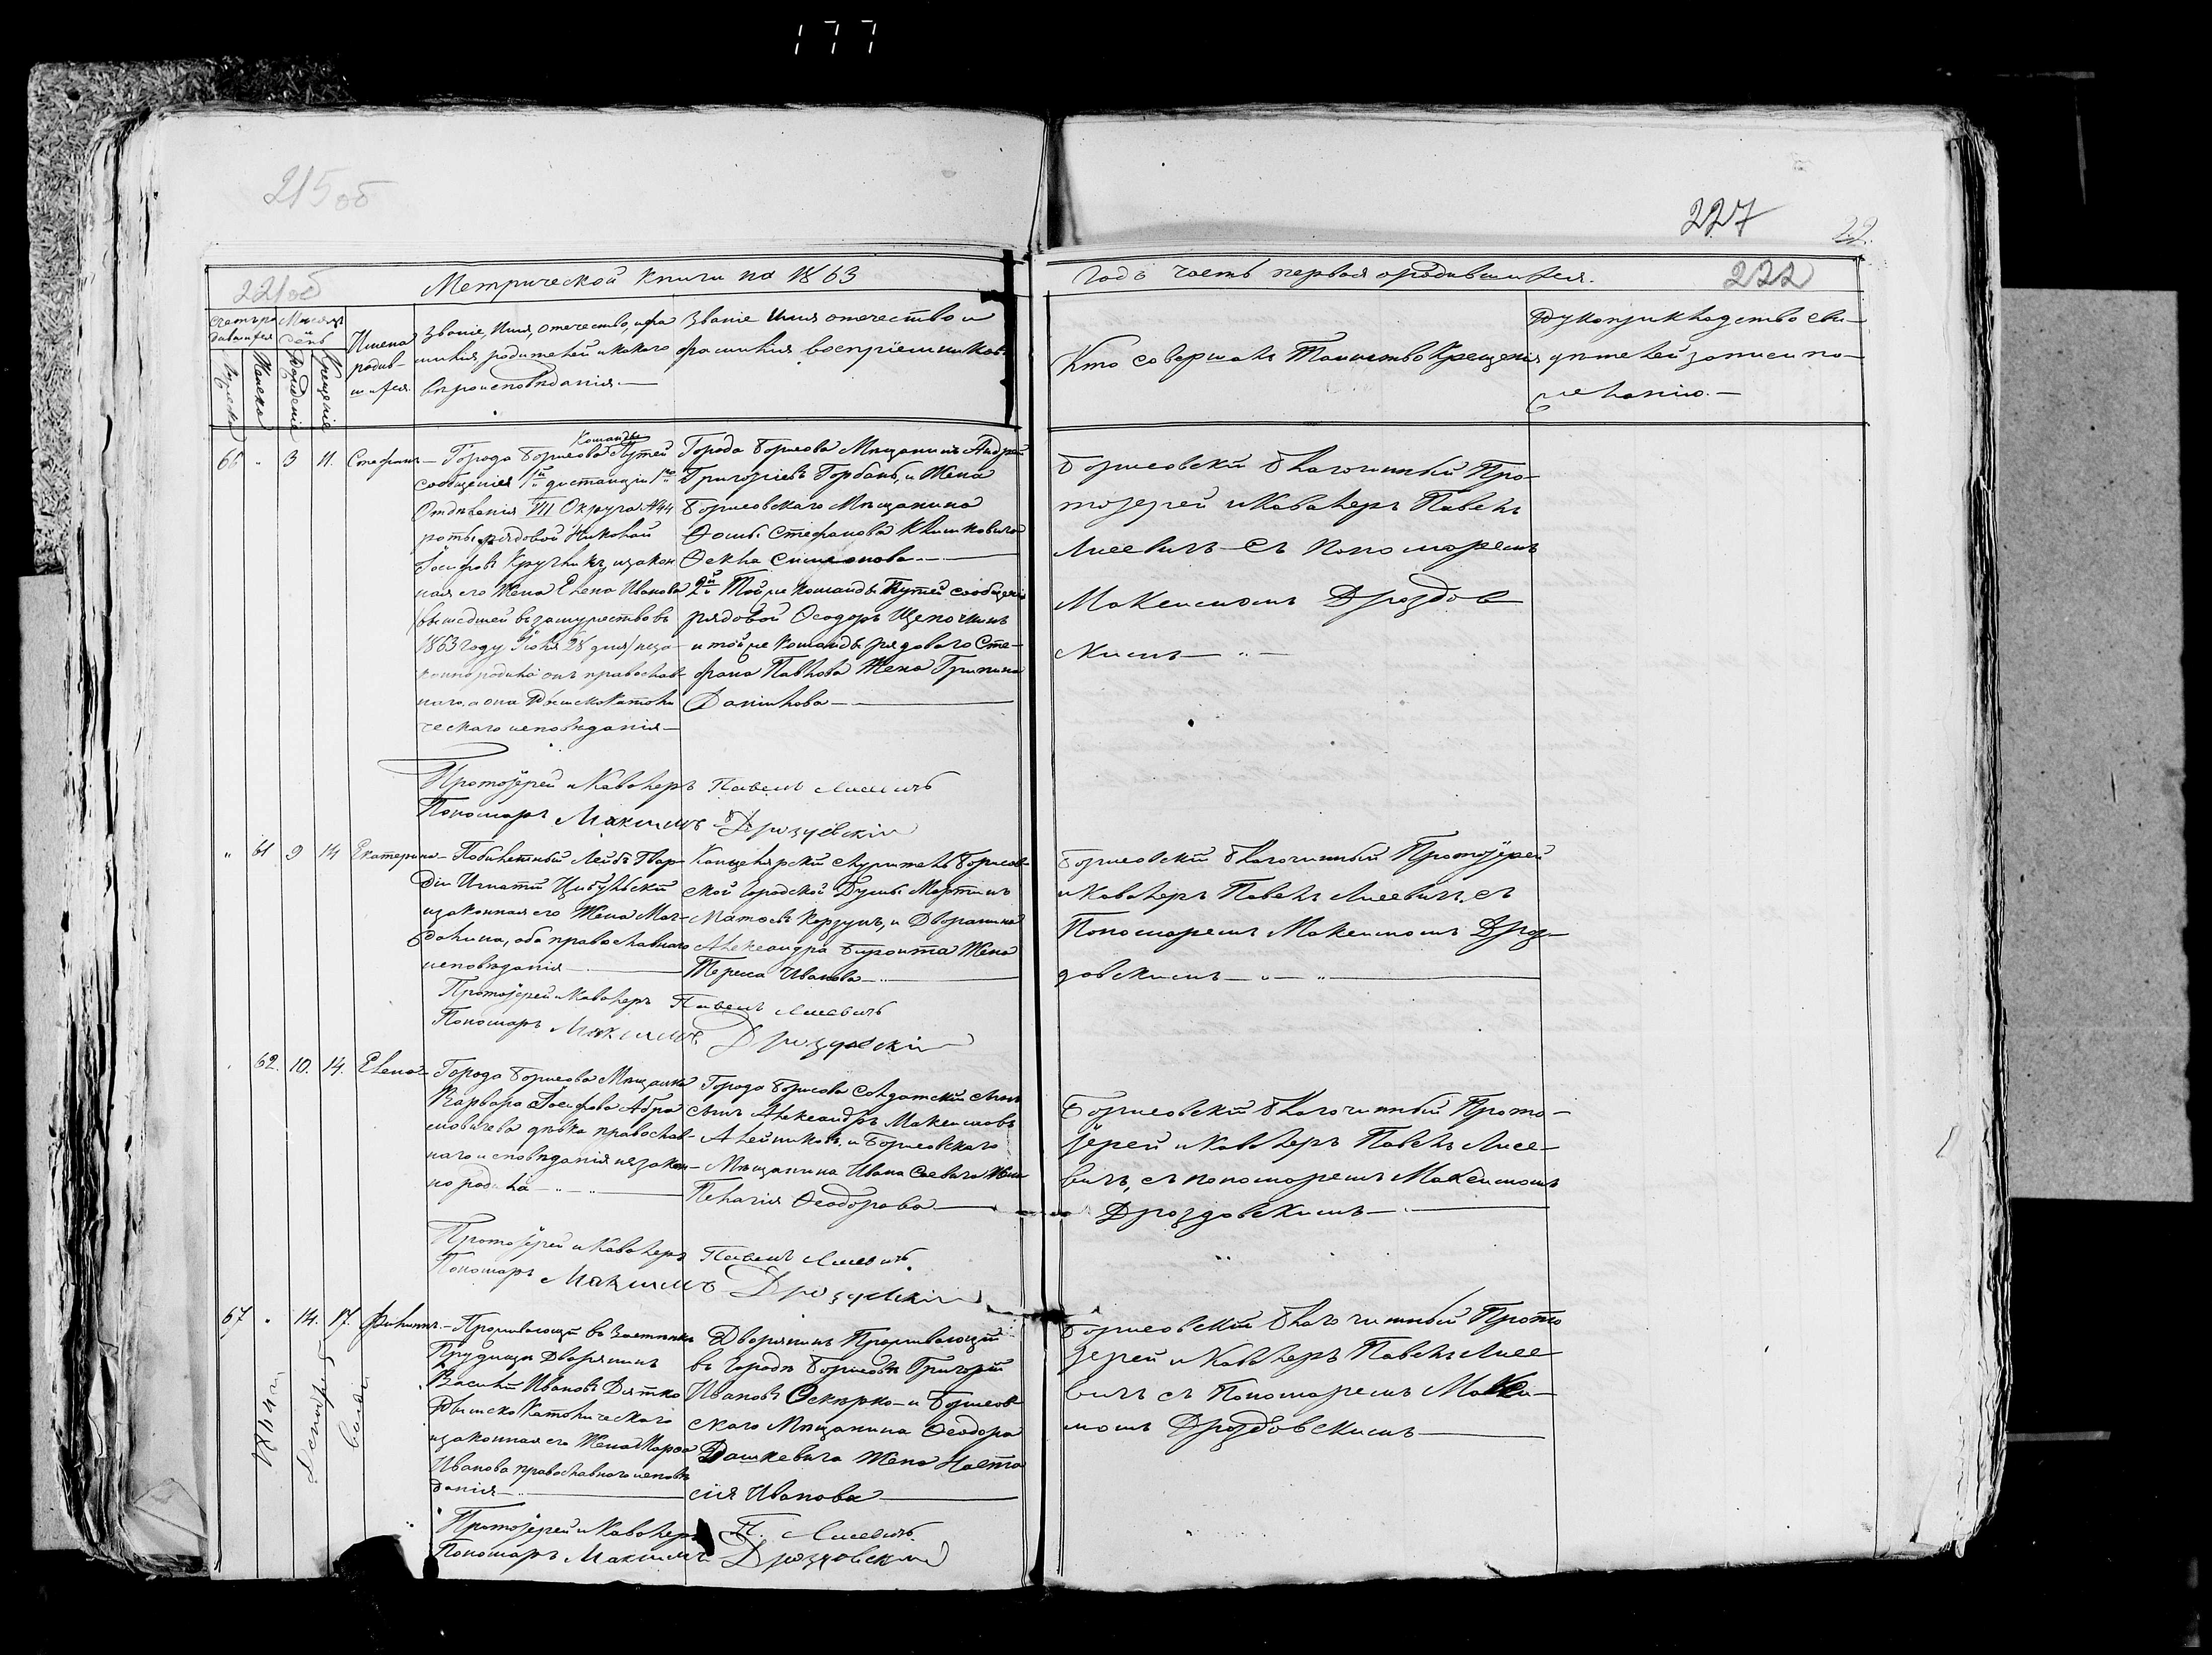 177
215 об
227
22.
221 об
Метрической книги на 1863
Годъ часть первая о родившихся.
222
Счетъ родившихся
Мѣсяцъ и день
Имена родившихся
Званіе, Имя, отечество, и фамилія родителей и какого вѣроисповѣданія.—
Званіе Имя отечество и фамилія воспріемниковъ
Кто совершалъ Таинство Крещенія
Рукоприкладство свидѣтелей записи по желанію.—
Мужеска
Женска
Рожденіе
Крещеніе
66 " 3 11. Стефанъ—
Команды
Города Борисова Путей
сообщенія 1й дистанціи 1го
Отдѣленія VII Округа №44
роты рядовой Николай
Іосифовъ и закон
ная его Жена Елена Иванова
/вышедшей въ замужество въ
1863 году Іюля 28 дня/ неза-
конно родила онъ православ-
наго, а она Римскокатоли
ческаго исповѣданія—
Города Борисова Мѣщанинъ Андрей
Григоріевъ Горбань, и Жена
Борисовскаго Мѣщанина
Ѳомы Стефанова Климковича
Ѳекла Симеонова—
2й Той же Команды Путей сообщенія
рядовой Ѳеодоръ Щепочкинъ
и той же Команды рядоваго Сте-
фана Павлова Жена Грипина
Данилова—
Борисовскій Благочинный Про-
тоіерей и Кавалеръ Павелъ
Лисевичъ съ Пономаремъ
Максимомъ Дроздов
скимъ— " —
Протоіерей и Кавалеръ Павелъ Лисевичъ
Пономарь Максимъ Дроздовскій
" 61 9 14 Екатерина—
Побилетный Лейбъ Гвар-
діи Игнатій Цибульскій
и законная его Жена Маг-
далина, оба православнаго
исповѣданія—
Канцелярскій служитель Борисов-
ской Городской Думы Мартинъ
Матоевъ Корзунъ, и Дворянина
Александра Жена
Тереса Иванова—
Борисовскій Благочинный Протоіерей
и Кавалеръ Павелъ Лисевичъ, съ
Пономаремъ Максимомъ Дроз-
довскимъ— " — "
Протоіерей и Кавалеръ Павелъ Лисевичъ
Пономарь Максимъ Дроздовскій
62. 10. 14. Елена—
Города Борисова Мѣщанка
Варвара Іосифова Абра
мовичева дѣвка православ-
наго исповѣданія незакон-
но родила— " — "
Города Борисова Солдатскій
сынъ Александръ Максимовъ
Алейниковъ, и Борисовскаго
Мѣщанина Ивана Саевича Жена
Пелагія Ѳеодорова—
Борисовскій Благочинный Прото-
іерей и Кавалеръ Павелъ Лисе-
вичъ, съ пономаремъ Максимомъ
Дроздовскимъ—
Протоіерей и Кавалеръ Павелъ Лисевичъ
Пономарь Максимъ Дроздовскій
67 " 14. 17. Филиппъ.—
Проживающій въ Застѣнкѣ
Прудищи Дворянинъ
Василій Ивановъ Дятко
Римско Католическаго
и законная его Жена Марфа
Иванова православного исповѣ
данія—
Дворянинъ Проживающій
въ городѣ Борисовѣ Григорій
Ивановъ Оскѣрко— и Борисов-
скаго Мѣщанина Ѳеодора
Дашкевича Жена Наста
сія Иванова—
Борисовскій Благочинный Прото
іерей и Кавалеръ Павелъ Лисе
вичъ съ Пономаремъ Макси-
момъ Дроздовскимъ—
Протоіерей и Кавалеръ П. Лисевичъ
Пономарь Максимъ Дроздовскій